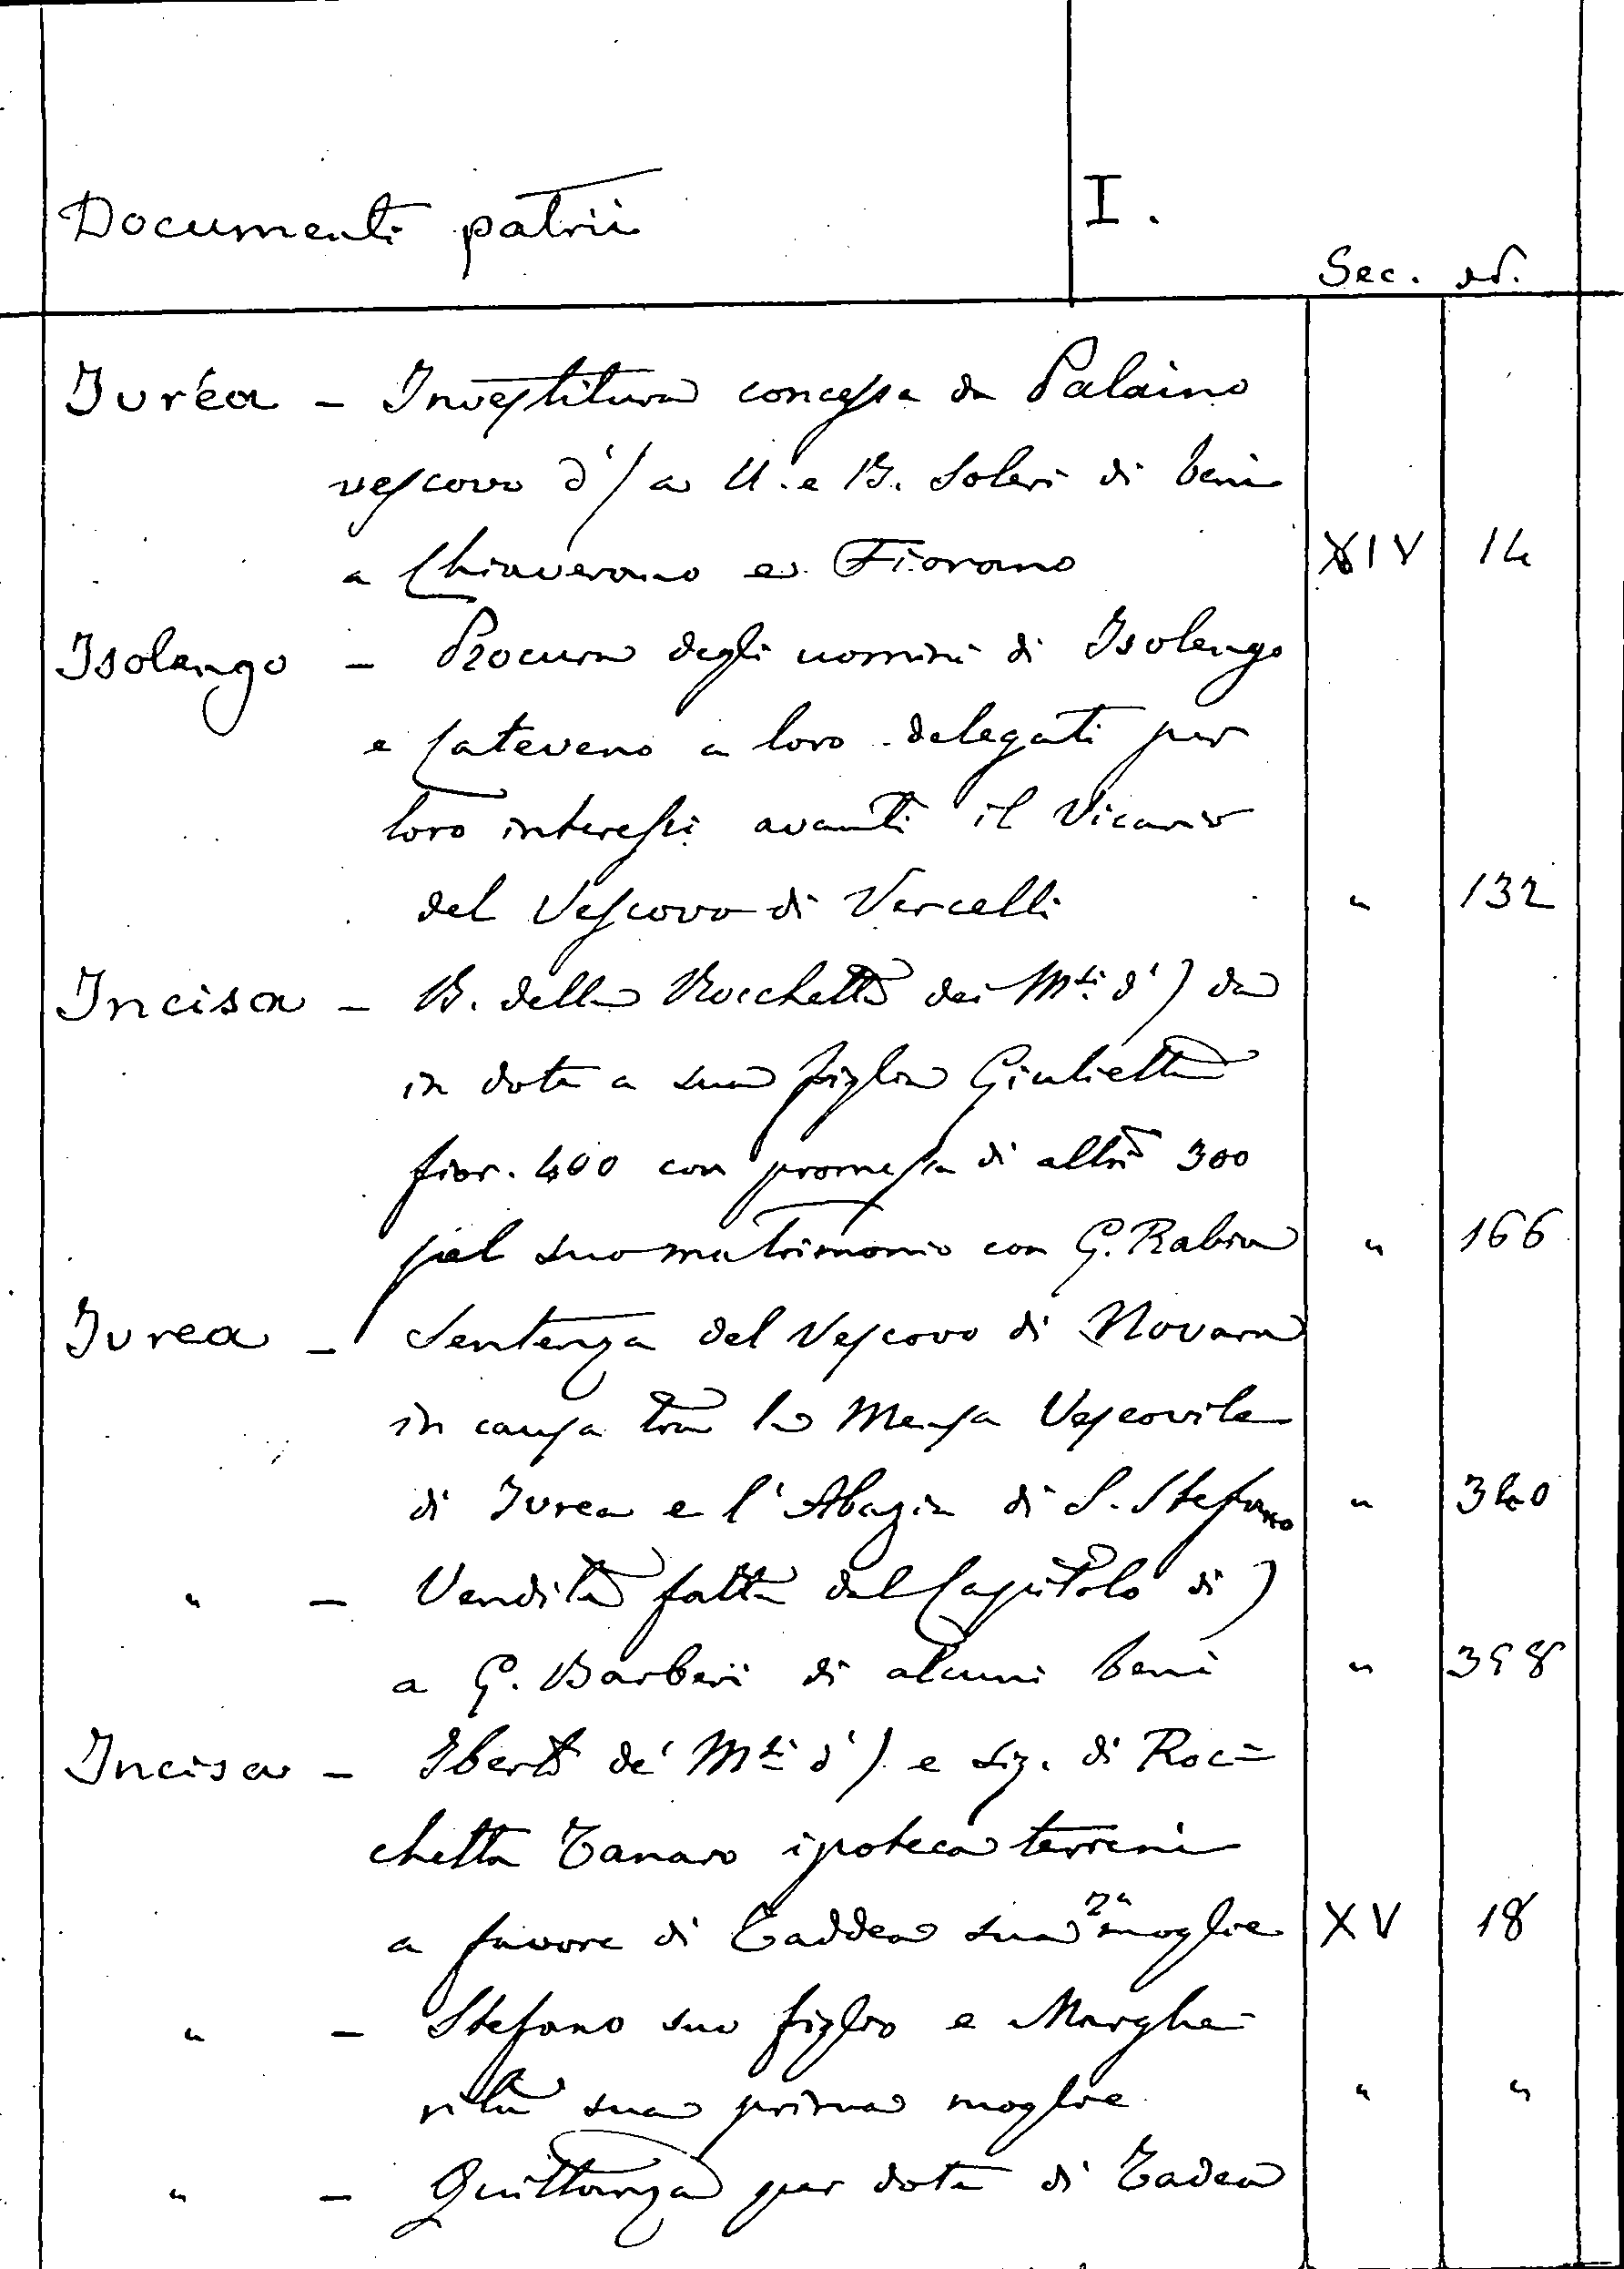 Documenti patrii I.
Sec. N.
Ivrea - Investitura concessa da Palaino
vescovo d') a U. e B. Soleri di beni
a Chiaverano e Fiorano XIV 14
Isolengo - Procura degli uomini di Isolengo
e Cateveno a loro delegati per
loro interessi avanti il Vicario
del Vescovo di Vercelli " 132
Incisa - B. della Rocchetta dei M.ti d') da
in dote a sua figlia Giulietta
fior. 400 con promessa di altri 300
pel suo matrimonio con G. Rabia " 166
Ivrea - Sentenza del Vescovo di Novara
in causa tra la Mensa Vescovile
di Ivrea e l'Abazia di S. Stefano " 340
" - Vendita fatta dal Capitolo di )
a G. Barberi di alcuni beni " 358
Incisa - Iberto de' M.ti d') e sig. di Roc=
chetta Tanaro ipoteca terreni
a favore di Taddea sua 2a moglie XV 18
" - Stefano suo figlio e Marghe-
rita sua prima moglie " "
" - Quittanza per dote di Tadea